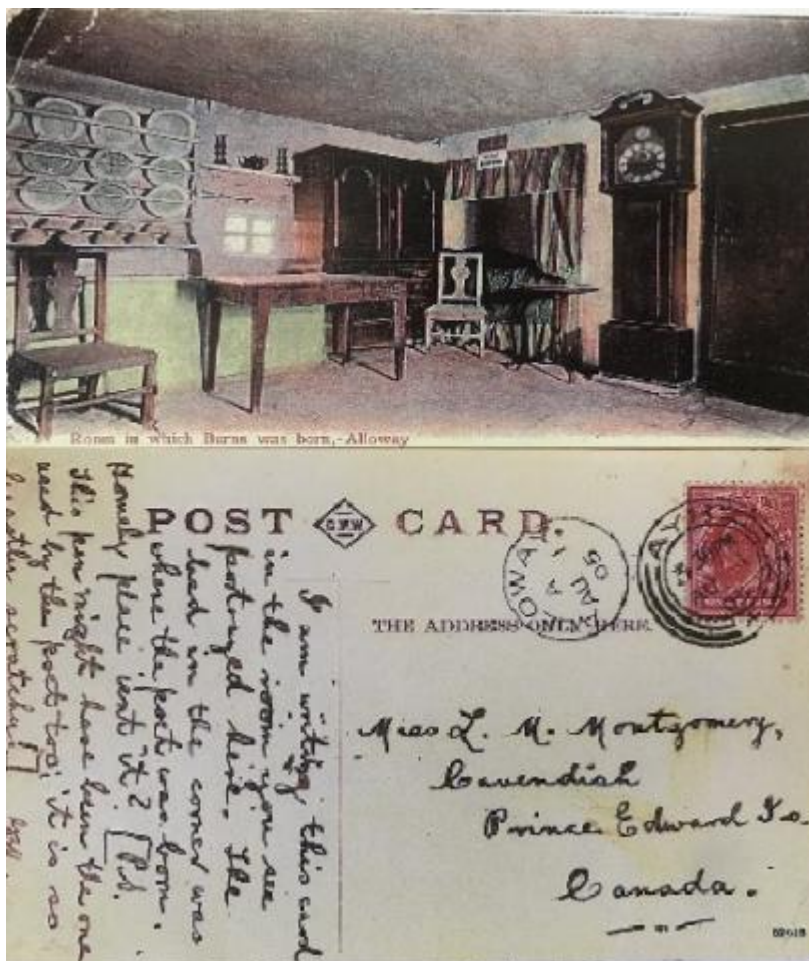 Room in which Burns was born,-Alloway
POST CARD.
THE ADDRESS ONLY HERE.
ALLOWAY
A
AU 1
05
AYR
I am writing this card
in the room you see
portrayed here. The
bed in the corner was
where the poet was born.
Homely place isn't it? [P.S.
This pen might have been the one
used by the poet too; it is so
scratchy!]
Miss L. M. Montgomery,
Cavendish
Prince Edward Is.
Canada.